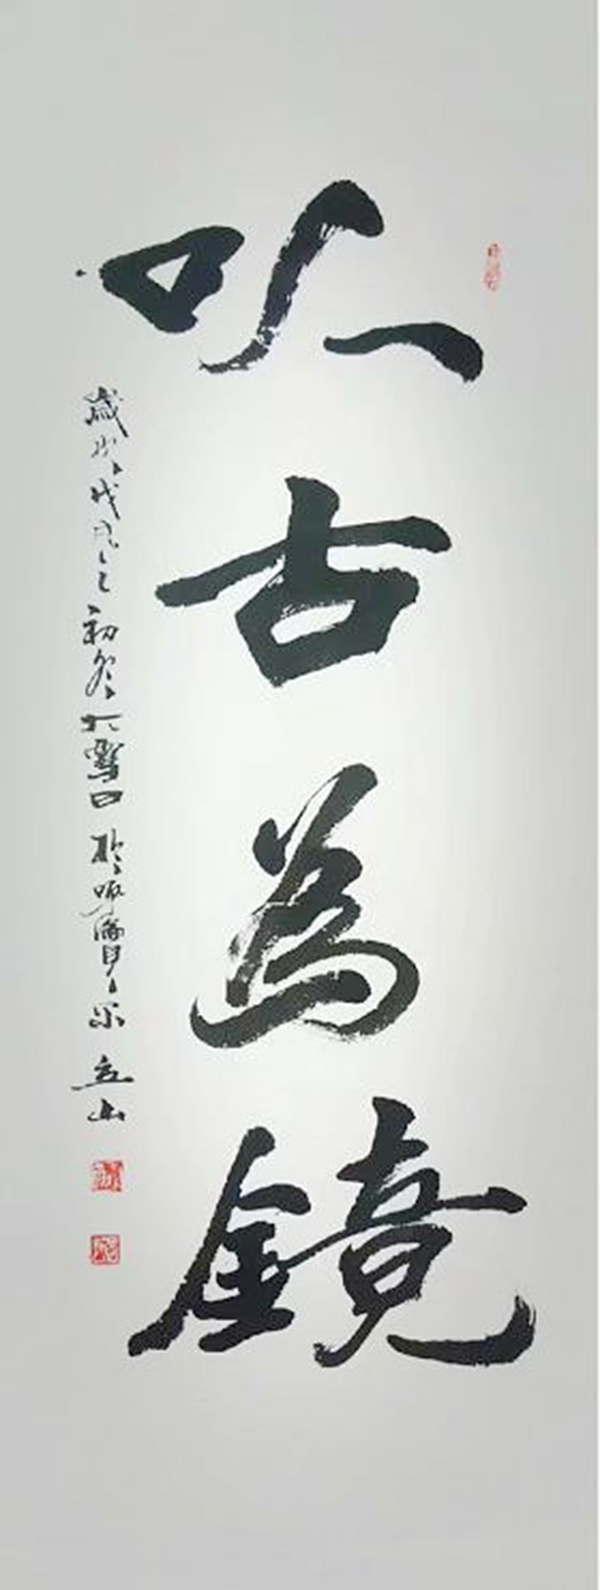 以古為鏡
歲次戊戌之初冬大雪日於寶立山